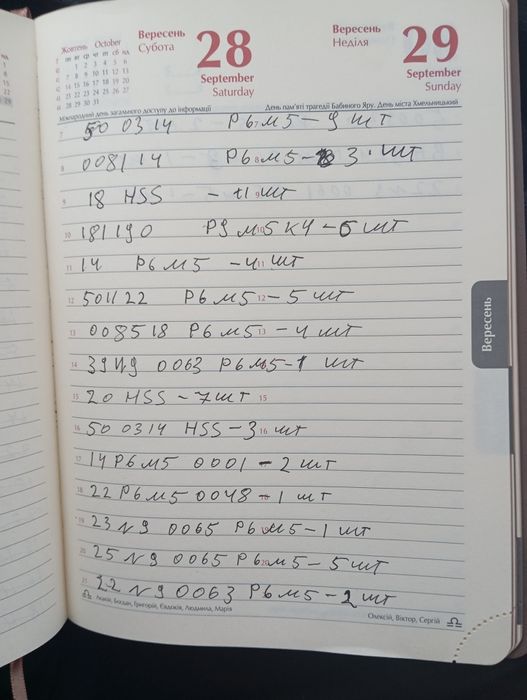 Жовтень October
Вересень
Субота
28
September
Saturday
Вересень
Неділя
29
September
Sunday
Міжнародний день загального доступу до інформації
День пам'яті трагедії Бабиного Яру. День міста Хмельницький
500314 Р6М5 – 9 шт
0081 14 Р6М5 – 3 шт
18 HSS – 11 шт
181190 Р9М5К4 – 5 шт
14 Р6М5 – 4 шт
501122 Р6М5 – 5 шт
008518 Р6М5 – 4 шт
39 №9 0063 Р6М5 – 1 шт
20 HSS – 7 шт
500314 HSS – 3 шт
14 Р6М5 0001 – 2 шт
22 Р6М5 0048 – 1 шт
23 №9 0065 Р6М5 – 1 шт
25 №9 0065 Р6М5 – 5 шт
22 №9 0063 Р6М5 – 2 шт
Богдан, Григорій, Євдокія, Людмила, Марія
Олексій, Віктор, Сергій
Вересень